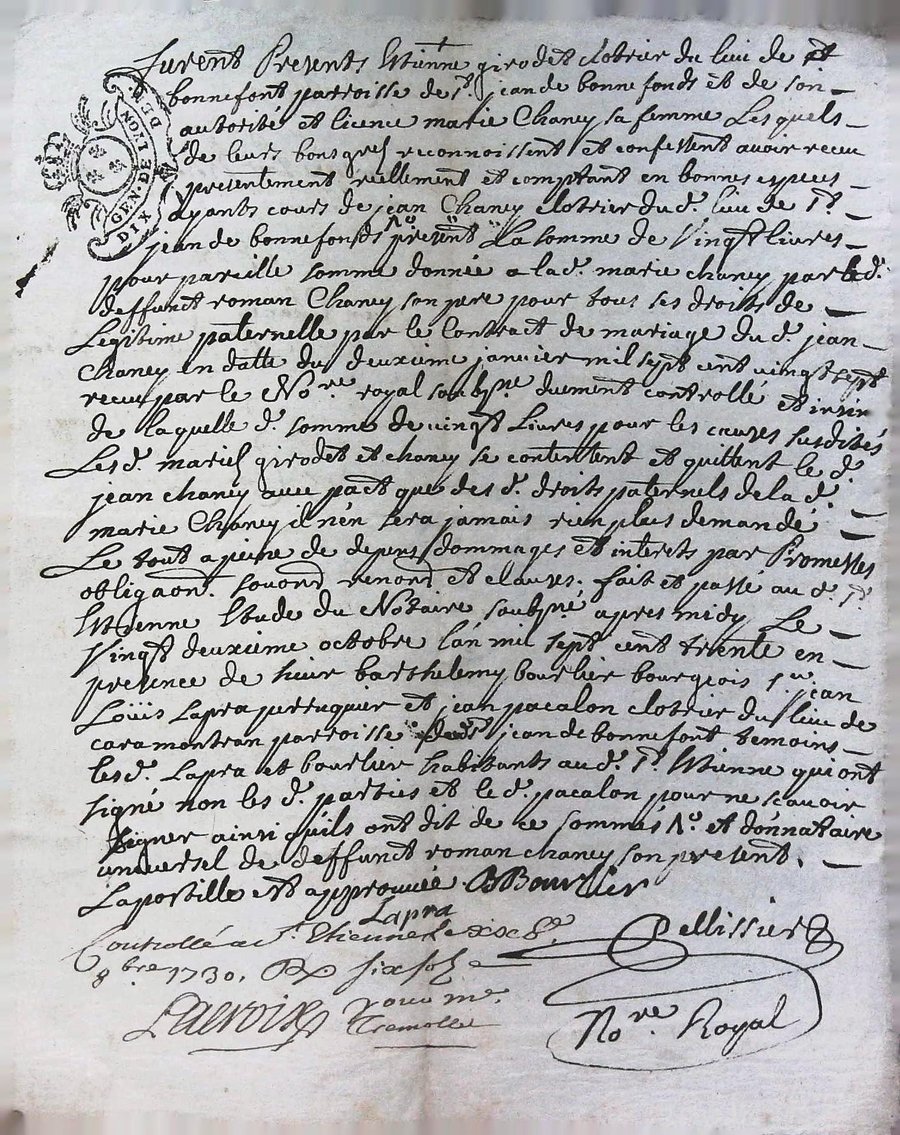 GEN. DE LYON
DIX DEN.
Furent Presents Estienne girodet clotrier du lieu de
bonnefont parroisse de st. jean de bonnefonds et de son
autorité et licence marie Chaney sa femme Lesquels
de leurs bons gres reconnoissent et confessent avoir receu
presentement reellement et comptant en bonnes especes
ayants cours de jean Chaney clotrier du d. lieu de st.
jean de bonnefonds present La somme de Vingt livres
pour pareille somme donnée a la d. marie chaney par led.
deffunct roman Chaney son pere pour tous ses droits de
Legitime paternelle par le Contract de mariage du d. jean
Chaney en datte du deuxieme janvier mil sept cent vingt sept
receu par le Nore royal soubsne duement controllé et insin
de laquelle d. somme de vingt Livres pour les causes susdites
Les d. mariés girodet et chaney se contentent et quittent le d.
jean chaney avec pact que des d. droits paternels de la d.
marie Chaney il n'en sera jamais rien plus demandé
Le tout a peine de depens dommages et interets par Promesses
obligaon. renond et clauses. fait et passé au d. st.
Estienne Etude du Notaire soubsné apres midy Le
Vingt deuxieme octobre l'an mil sept cent trente en
presence de sieur barthelemy bourlier bourgeois sr. jean
Loüis Lapra perruquier et jean pacalon clotrier du lieu de
caramontran parroisse jean de bonnefont temoins
les d. Lapra et bourlier habitants au d. st. Estienne qui ont
signé non les d. parties et le d. pacalon pour ne scavoir
signer ainsi quils ont dit de ce sommés et donnataire
universel de deffunct roman chaney son present.
Lapostille est approuvée B Bourlier
Lapra
Controllé a st. Etienne le
8bre 1730. Rx six sols
Pellissier
Lacroix
Nore Royal